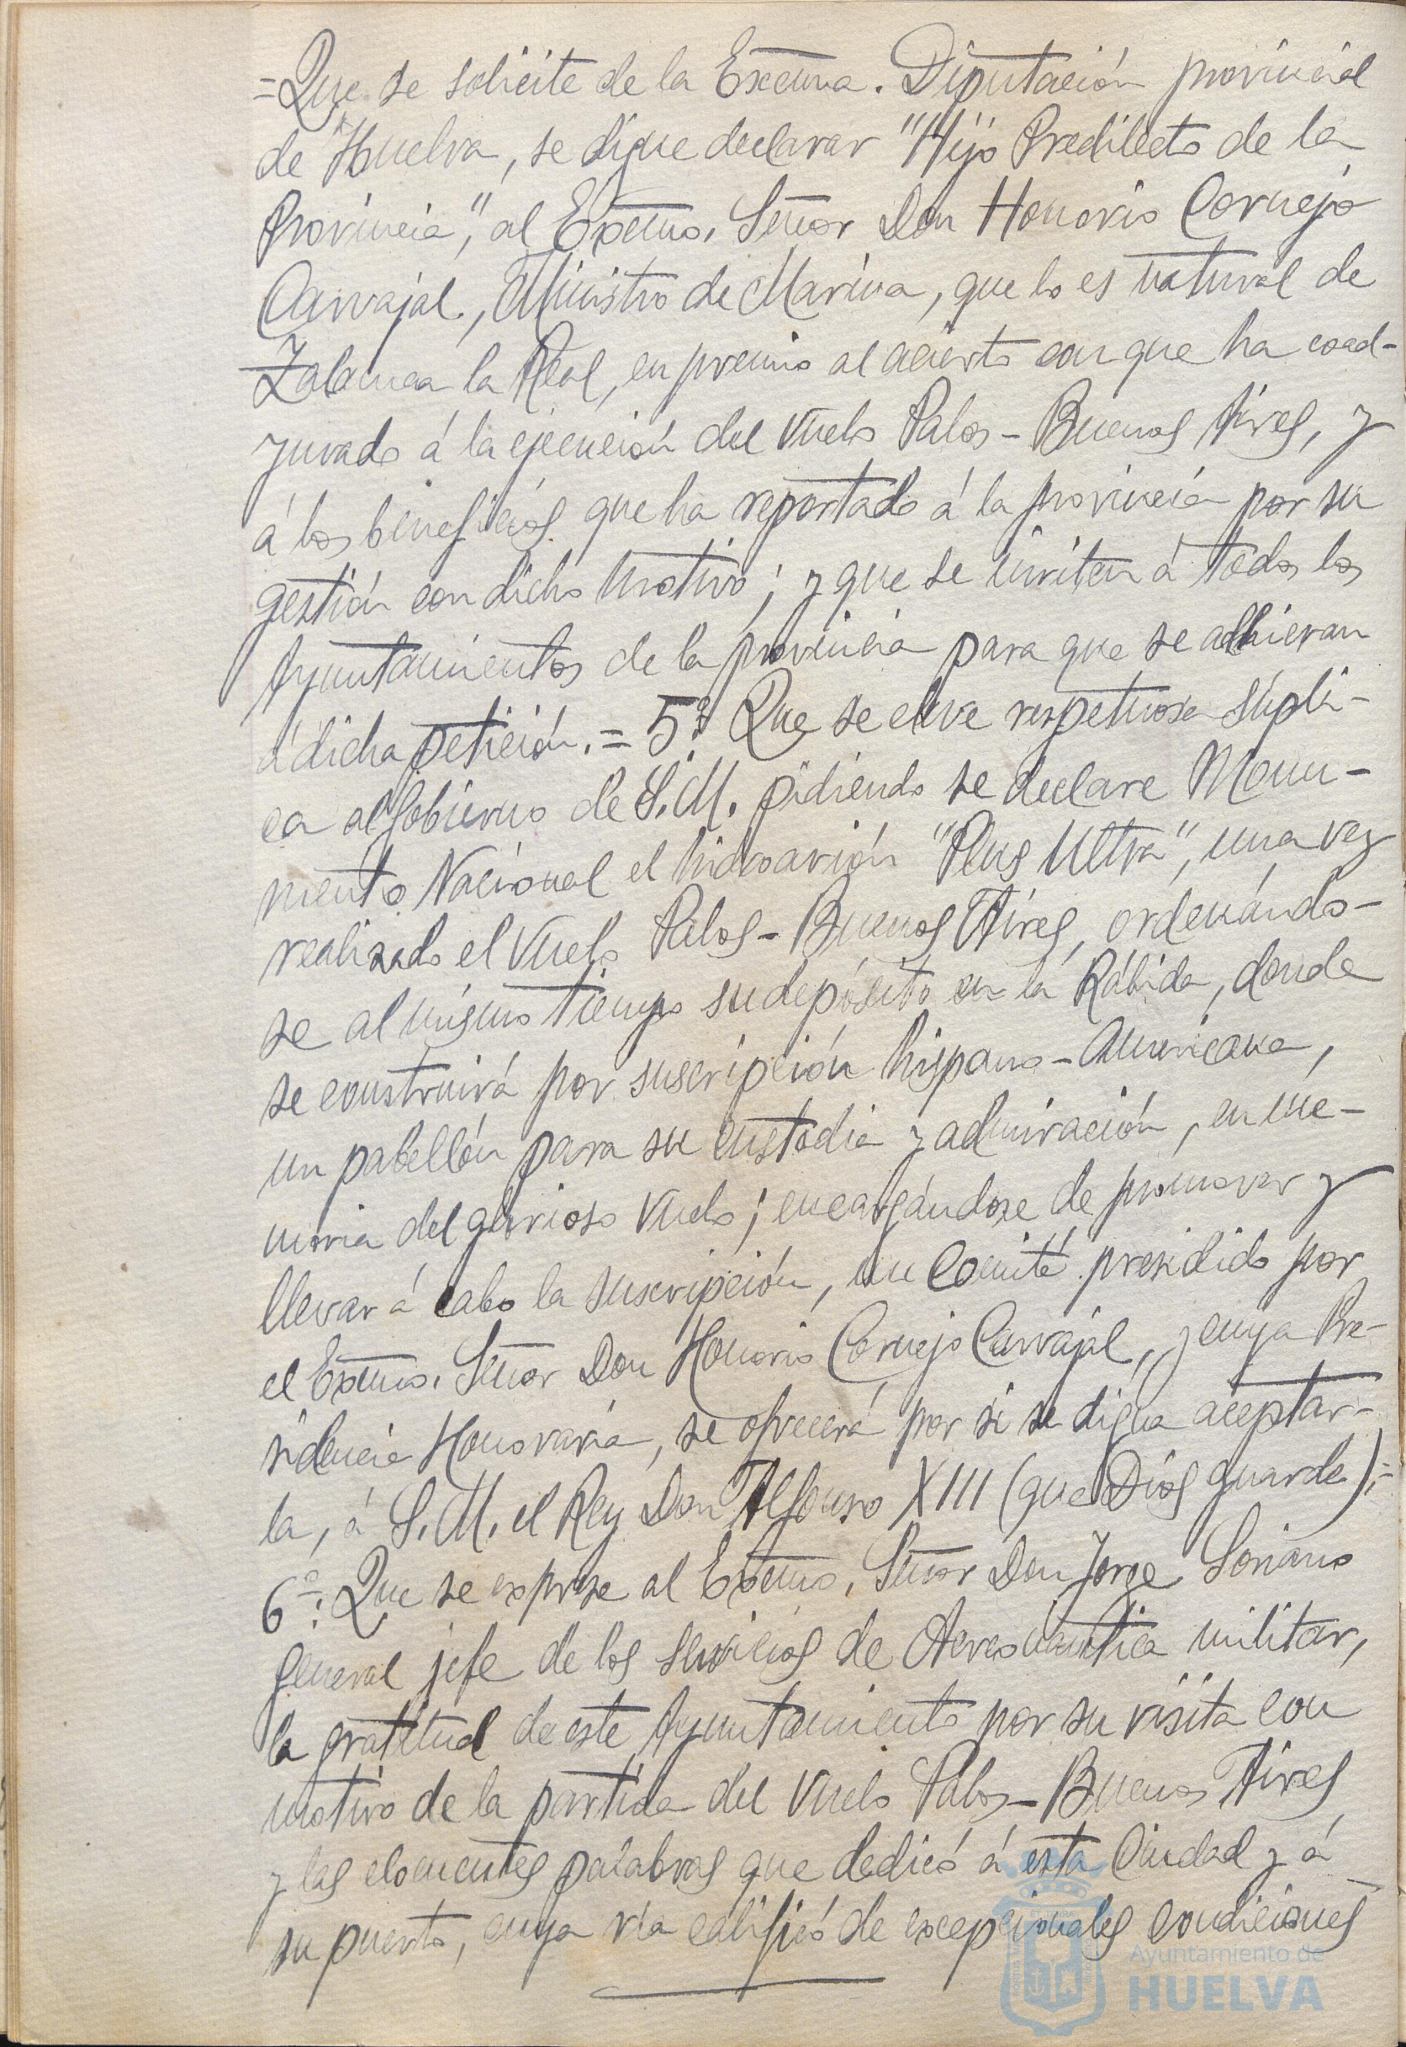 =Que se solicite de la Excma. Diputación provincial
de Huelva, se digne declarar "Hijo Predilecto de la
Provincia", al Excmo. Señor Don Honorio Cornejo
Carvajal, Ministro de Marina, que lo es natural de
Zalamea la Real, en premio al acierto con que ha coad-
yuvado á la ejecución del vuelo Palos-Buenos Aires, y
á los beneficios que ha reportado á la provincia por su
gestión con dicho motivo; y que se inviten á todos los
Ayuntamientos de la provincia para que se adhieran
á dicha petición.= 5º Que se eleve respetuosa súpli-
ca al Gobierno de S.M. pidiendo se declare Monu-
mento Nacional el hidroavión "Plus Ultra", una vez
realizado el vuelo Palos-Buenos Aires, ordenándo-
se al mismo tiempo su depósito en la Rábida, donde
se construirá por suscripción hispano-Americana,
un pabellón para su custodia y admiración, en me-
moria del glorioso vuelo; encargándose de promover y
llevar á cabo la suscripción, un Comité presidido por
el Excmo. Señor Don Honorio Cornejo Carvajal, y cuya Pre-
sidencia Honoraria, se ofrecerá por si se digna aceptar-
la, á S.M. el Rey Don Alfonso XIII (que Dios guarde);=
6º: Que se exprese al Excmo. Señor Don Jorge Soriano
general jefe de los servicios de Aereonáutica militar,
la gratitud de este Ayuntamiento por su visita con
motivo de la partida del vuelo Palos-Buenos Aires
y las elocuentes palabras que dedicó á esta Ciudad y á
su puerto, cuya ría calificó de excepcionales condiciones
Ayuntamiento de
HUELVA